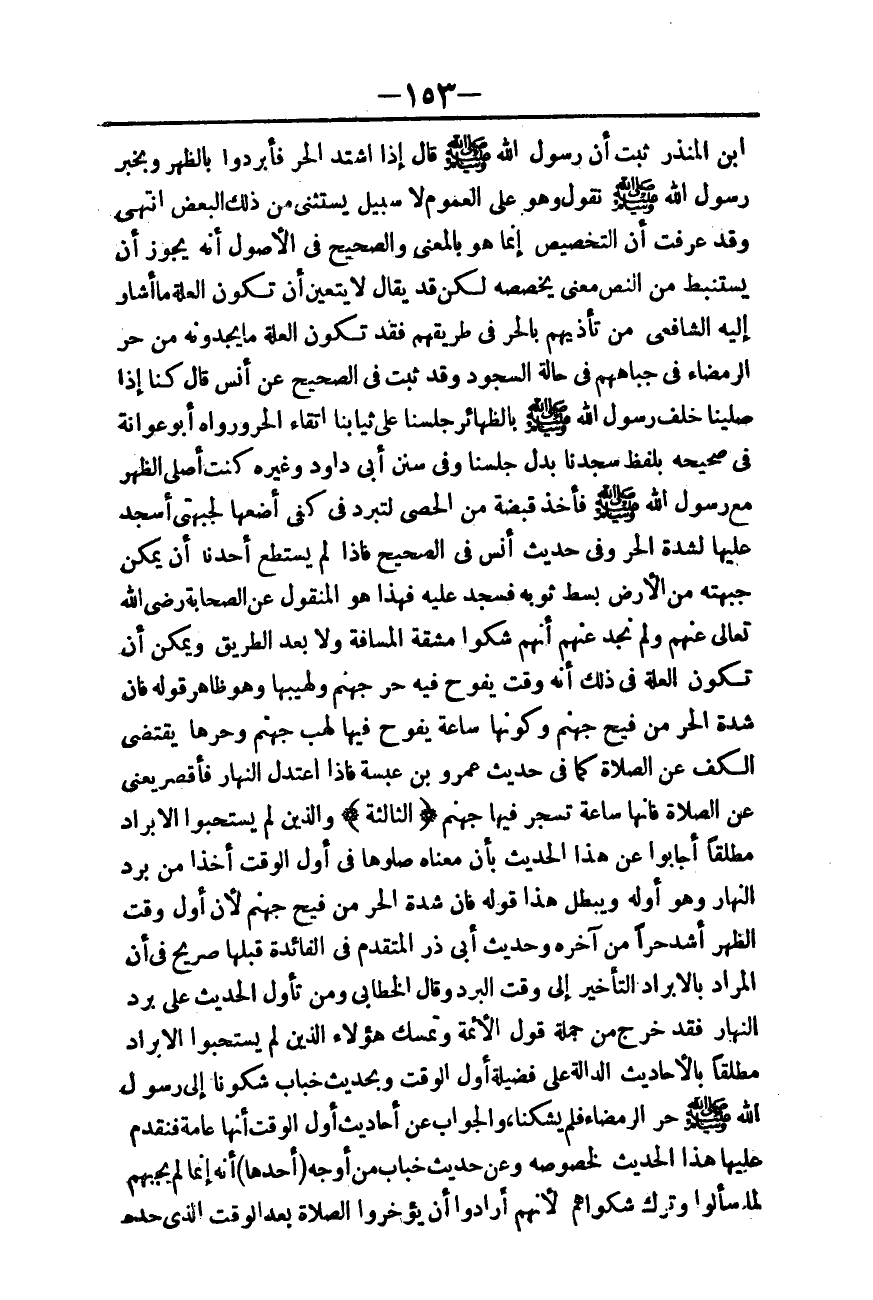 —١٥٣—
ابن المنذر ثبت أن رسول الله ﷺ قال إذا اشتد الحر فأبردوا بالظهر وبخبر
رسول الله ﷺ نقول وهو على العموم لا سبيل يستثنى من ذلك البعض انتهى
وقد عرفت أن التخصيص إنما هو بالمعنى والصحيح فى الأصول أنه يجوز أن
يستنبط من النص معنى يخصصه لكن قد يقال لا يتعين أن تكون العلة ما أشار
إليه الشافعى من تأذيهم بالحر فى طريقهم فقد تكون العلة ما يجدونه من حر
الرمضاء فى جباههم فى حالة السجود وقد ثبت فى الصحيح عن أنس قال كنا إذا
صلينا خلف رسول الله ﷺ بالظهائر جلسنا على ثيابنا اتقاء الحر ورواه أبو عوانة
فى صحيحه بلفظ سجدنا بدل جلسنا وفى سنن أبى داود وغيره كنت أصلى الظهر
مع رسول الله ﷺ فأخذ قبضة من الحصى لتبرد فى كفى أضعها لجبهتى أسجد
عليها لشدة الحر وفى حديث أنس فى الصحيح فاذا لم يستطع أحدنا أن يمكن
جبهته من الأرض بسط ثوبه فسجد عليه فهذا هو المنقول عن الصحابة رضى الله
تعالى عنهم ولم نجد عنهم أنهم شكوا مشقة المسافة ولا بعد الطريق ويمكن أن
تكون العلة فى ذلك أنه وقت يفوح فيه حر جهنم ولهيبها وهو ظاهر قوله فان
شدة الحر من فيح جهنم وكونها ساعة يفوح فيها لهب جهنم وحرها يقتضى
الكف عن الصلاة كما فى حديث عمرو بن عبسة فاذا اعتدل النهار فأقصر يعنى
عن الصلاة فانها ساعة تسجر فيها جهنم ﴿ الثالثة ﴾ والذين لم يستحبوا الابراد
مطلقاً أجابوا عن هذا الحديث بأن معناه صلوها فى أول الوقت أخذا من برد
النهار وهو أوله ويبطل هذا قوله فان شدة الحر من فيح جهنم لأن أول وقت
الظهر أشد حراً من آخره وحديث أبى ذر المتقدم فى الفائدة قبلها صريح فى أن
المراد بالابراد التأخير إلى وقت البرد وقال الخطابى ومن تأول الحديث على برد
النهار فقد خرج من جملة قول الأئمة وتمسك هؤلاء الذين لم يستحبوا الابراد
مطلقاً بالأحاديث الدالة على فضيلة أول الوقت وبحديث خباب شكونا إلى رسول
الله ﷺ حر الرمضاء فلم يشكنا، والجواب عن أحاديث أول الوقت أنها عامة فنقدم
عليها هذا الحديث لخصوصه وعن حديث خباب من أوجه (أحدها) أنه إنما لم يجبهم
لما سألوا وترك شكواهم لأنهم أرادوا أن يؤخروا الصلاة بعد الوقت الذى حده